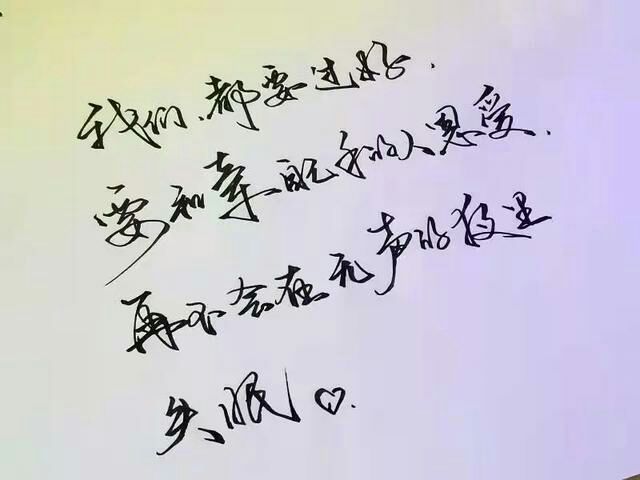 我们、都要过好.
要和牵既手的人恩爱.
再不会在无声的夜里
失眠♡.